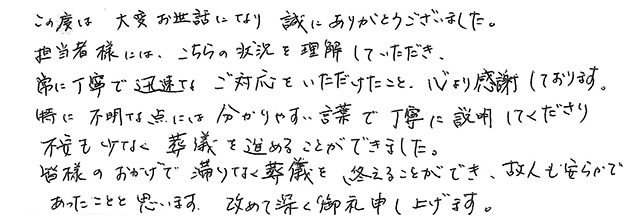 この度は 大変お世話になり 誠にありがとうございました。
担当者様には、こちらの状況を理解していただき、
常に丁寧で迅速な ご対応をいただけたこと、心より感謝しております。
特に 不明な点には 分かりやすい言葉で 丁寧に説明してくださり
不安も少なく 葬儀を進めることができました。
皆様のおかげで 滞りなく葬儀を 終えることができ、故人も安らかで
あったことと思います。改めて深く御礼申し上げます。